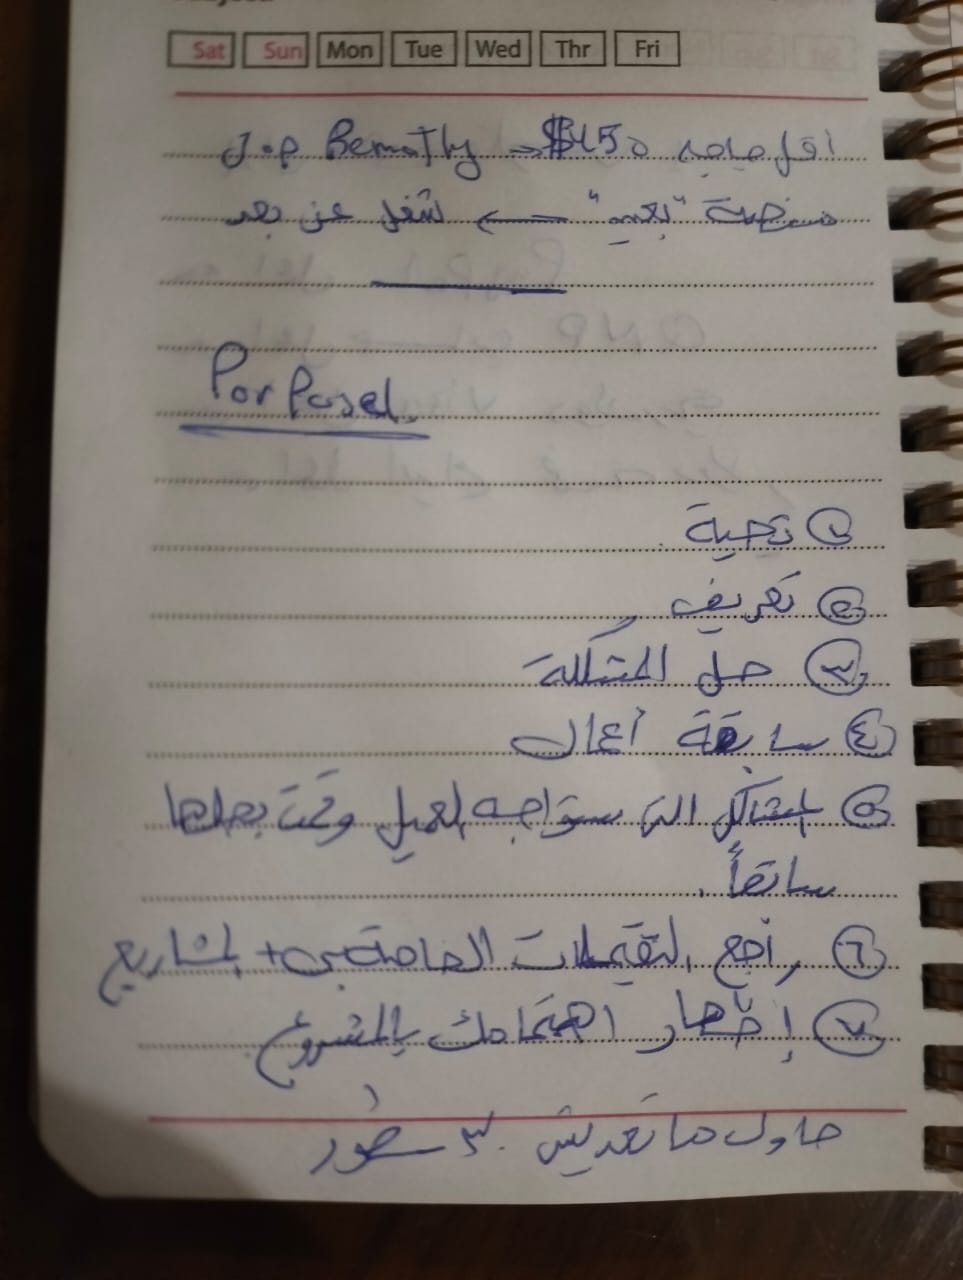 Sat Sun Mon Tue Wed Thr Fri
أقل حاجة $450 → Bemotly جوجل
منصة "بعيد" ← شغل عن بعد
Porposel.
١ تحية
٢ تعريف
٣ حل المشكلة
٤ سابقة أعمال
٥ المشاكل التي ستواجه العميل وقمت بحلها
سابقاً.
٦ راجع التقيمات الخاصة بي + المشاريع
٧ إظهار اهتمامك بالمشروع
حاول ما تعديش ٣ سطور